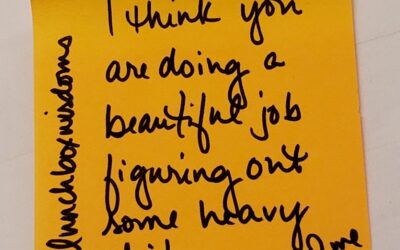 I think you
are doing a
beautiful job
figuring out
some heavy
lunchboxwisdoms